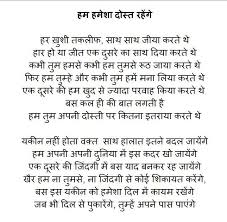 हम हमेशा दोस्त रहेंगे
हर खुशी तकलीफ, साथ साथ जीया करते थे
हार हो या जीत एक दूसरे का साथ दिया करते थे
कभी तुम हमसे कभी हम तुमसे रूठ जाया करते थे
फिर हम तुम्हे और कभी तुम हमें मना लिया करते थे
एक दूसरे की हम खुद से ज्यादा परवाह किया करते थे
बस कल ही की बात लगती है
हम तुम अपनी दोस्ती पर कितना इतराया करते थे
यकीन नहीं होता वक्त साथ हालात इतने बदल जायेंगे
हम अपनी अपनी दुनिया में इस कदर खो जायेंगे
एक दूसरे की जिंदगी में बस याद बनकर रह जायेंगे
खैर हम ना तुमसे, ना जिंदगी से कोई शिकायत करेंगे,
बस इस यकीन को हमेशा दिल में कायम रखेंगे
जब भी दिल से पुकारेंगे, तुम्हें अपने पास पाएंगे